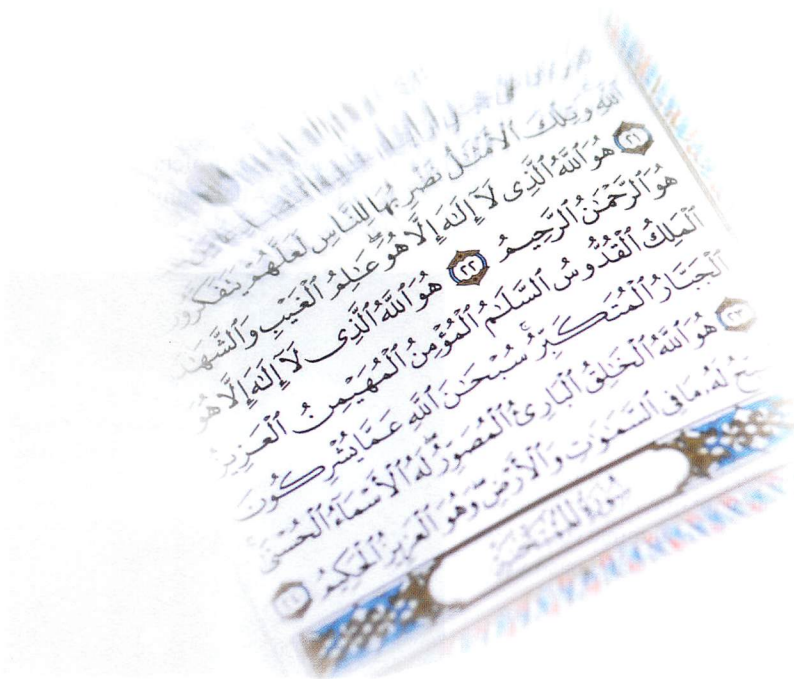 ٱللَّهِ وَتِلْكَ ٱلْأَمْثَٰلُ نَضْرِبُهَا لِلنَّاسِ لَعَلَّهُمْ يَتَفَكَّرُونَ ٢١
هُوَ ٱللَّهُ ٱلَّذِى لَآ إِلَٰهَ إِلَّا هُوَ ۖ عَٰلِمُ ٱلْغَيْبِ وَٱلشَّهَٰدَ
هُوَ ٱلرَّحْمَٰنُ ٱلرَّحِيمُ ٢٢ هُوَ ٱللَّهُ ٱلَّذِى لَآ إِلَٰهَ إِلَّا هُوَ
ٱلْمَلِكُ ٱلْقُدُّوسُ ٱلسَّلَٰمُ ٱلْمُؤْمِنُ ٱلْمُهَيْمِنُ ٱلْعَزِيزُ
ٱلْجَبَّارُ ٱلْمُتَكَبِّرُ ۚ سُبْحَٰنَ ٱللَّهِ عَمَّا يُشْرِكُونَ
٢٣ هُوَ ٱللَّهُ ٱلْخَٰلِقُ ٱلْبَارِئُ ٱلْمُصَوِّرُ ۖ لَهُ ٱلْأَسْمَآءُ ٱلْحُسْنَىٰ
ـحُ لَهُۥ مَا فِى ٱلسَّمَٰوَٰتِ وَٱلْأَرْضِ ۖ وَهُوَ ٱلْعَزِيزُ ٱلْحَكِيمُ ٢٤
سُورَةُ ٱلْمُمْتَحَنَةِ